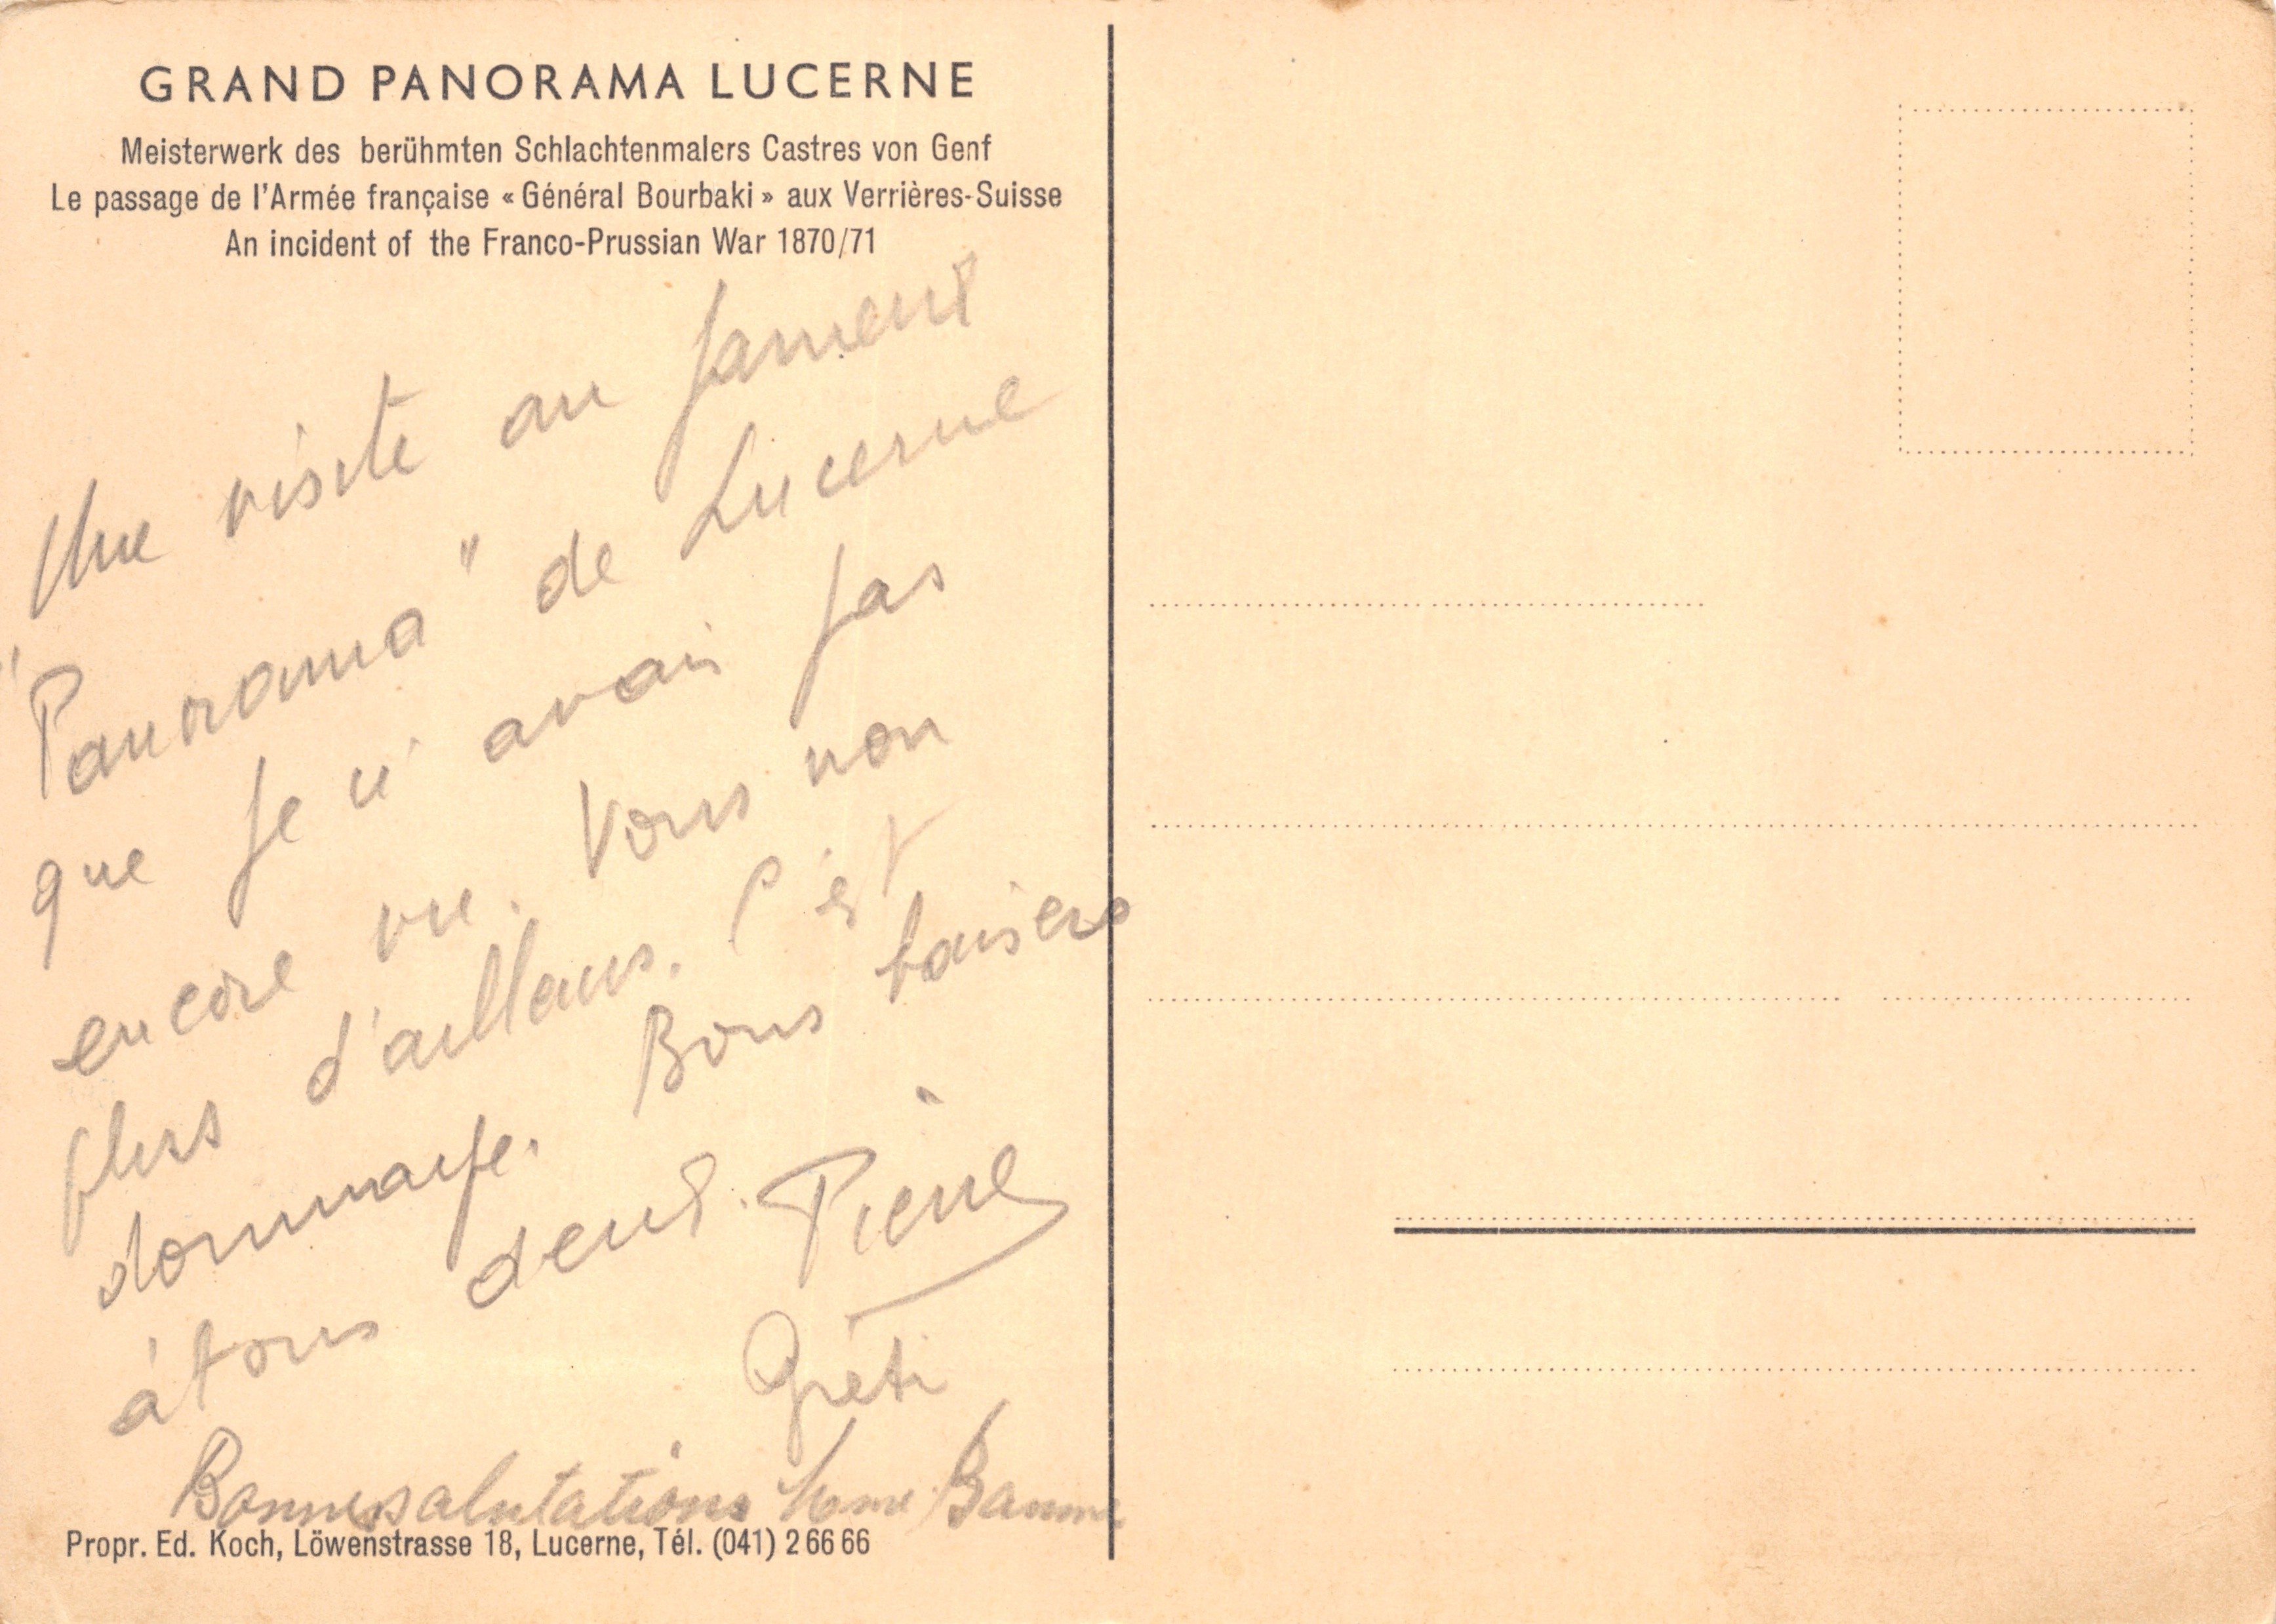 GRAND PANORAMA LUCERNE
Meisterwerk des berühmten Schlachtenmalers Castres von Genf
Le passage de l'Armée française « Général Bourbaki » aux Verrières-Suisse
An incident of the Franco-Prussian War 1870/71
Une visite au fameux
"Panorama" de Lucerne
que je n'avais pas
encore vu. Vous non
plus d'ailleurs. C'est
dommage. Bons baisers
à tous deux. Pierre
Gréti
Bonnes salutations Mme
Propr. Ed. Koch, Löwenstrasse 18, Lucerne, Tél. (041) 2 66 66